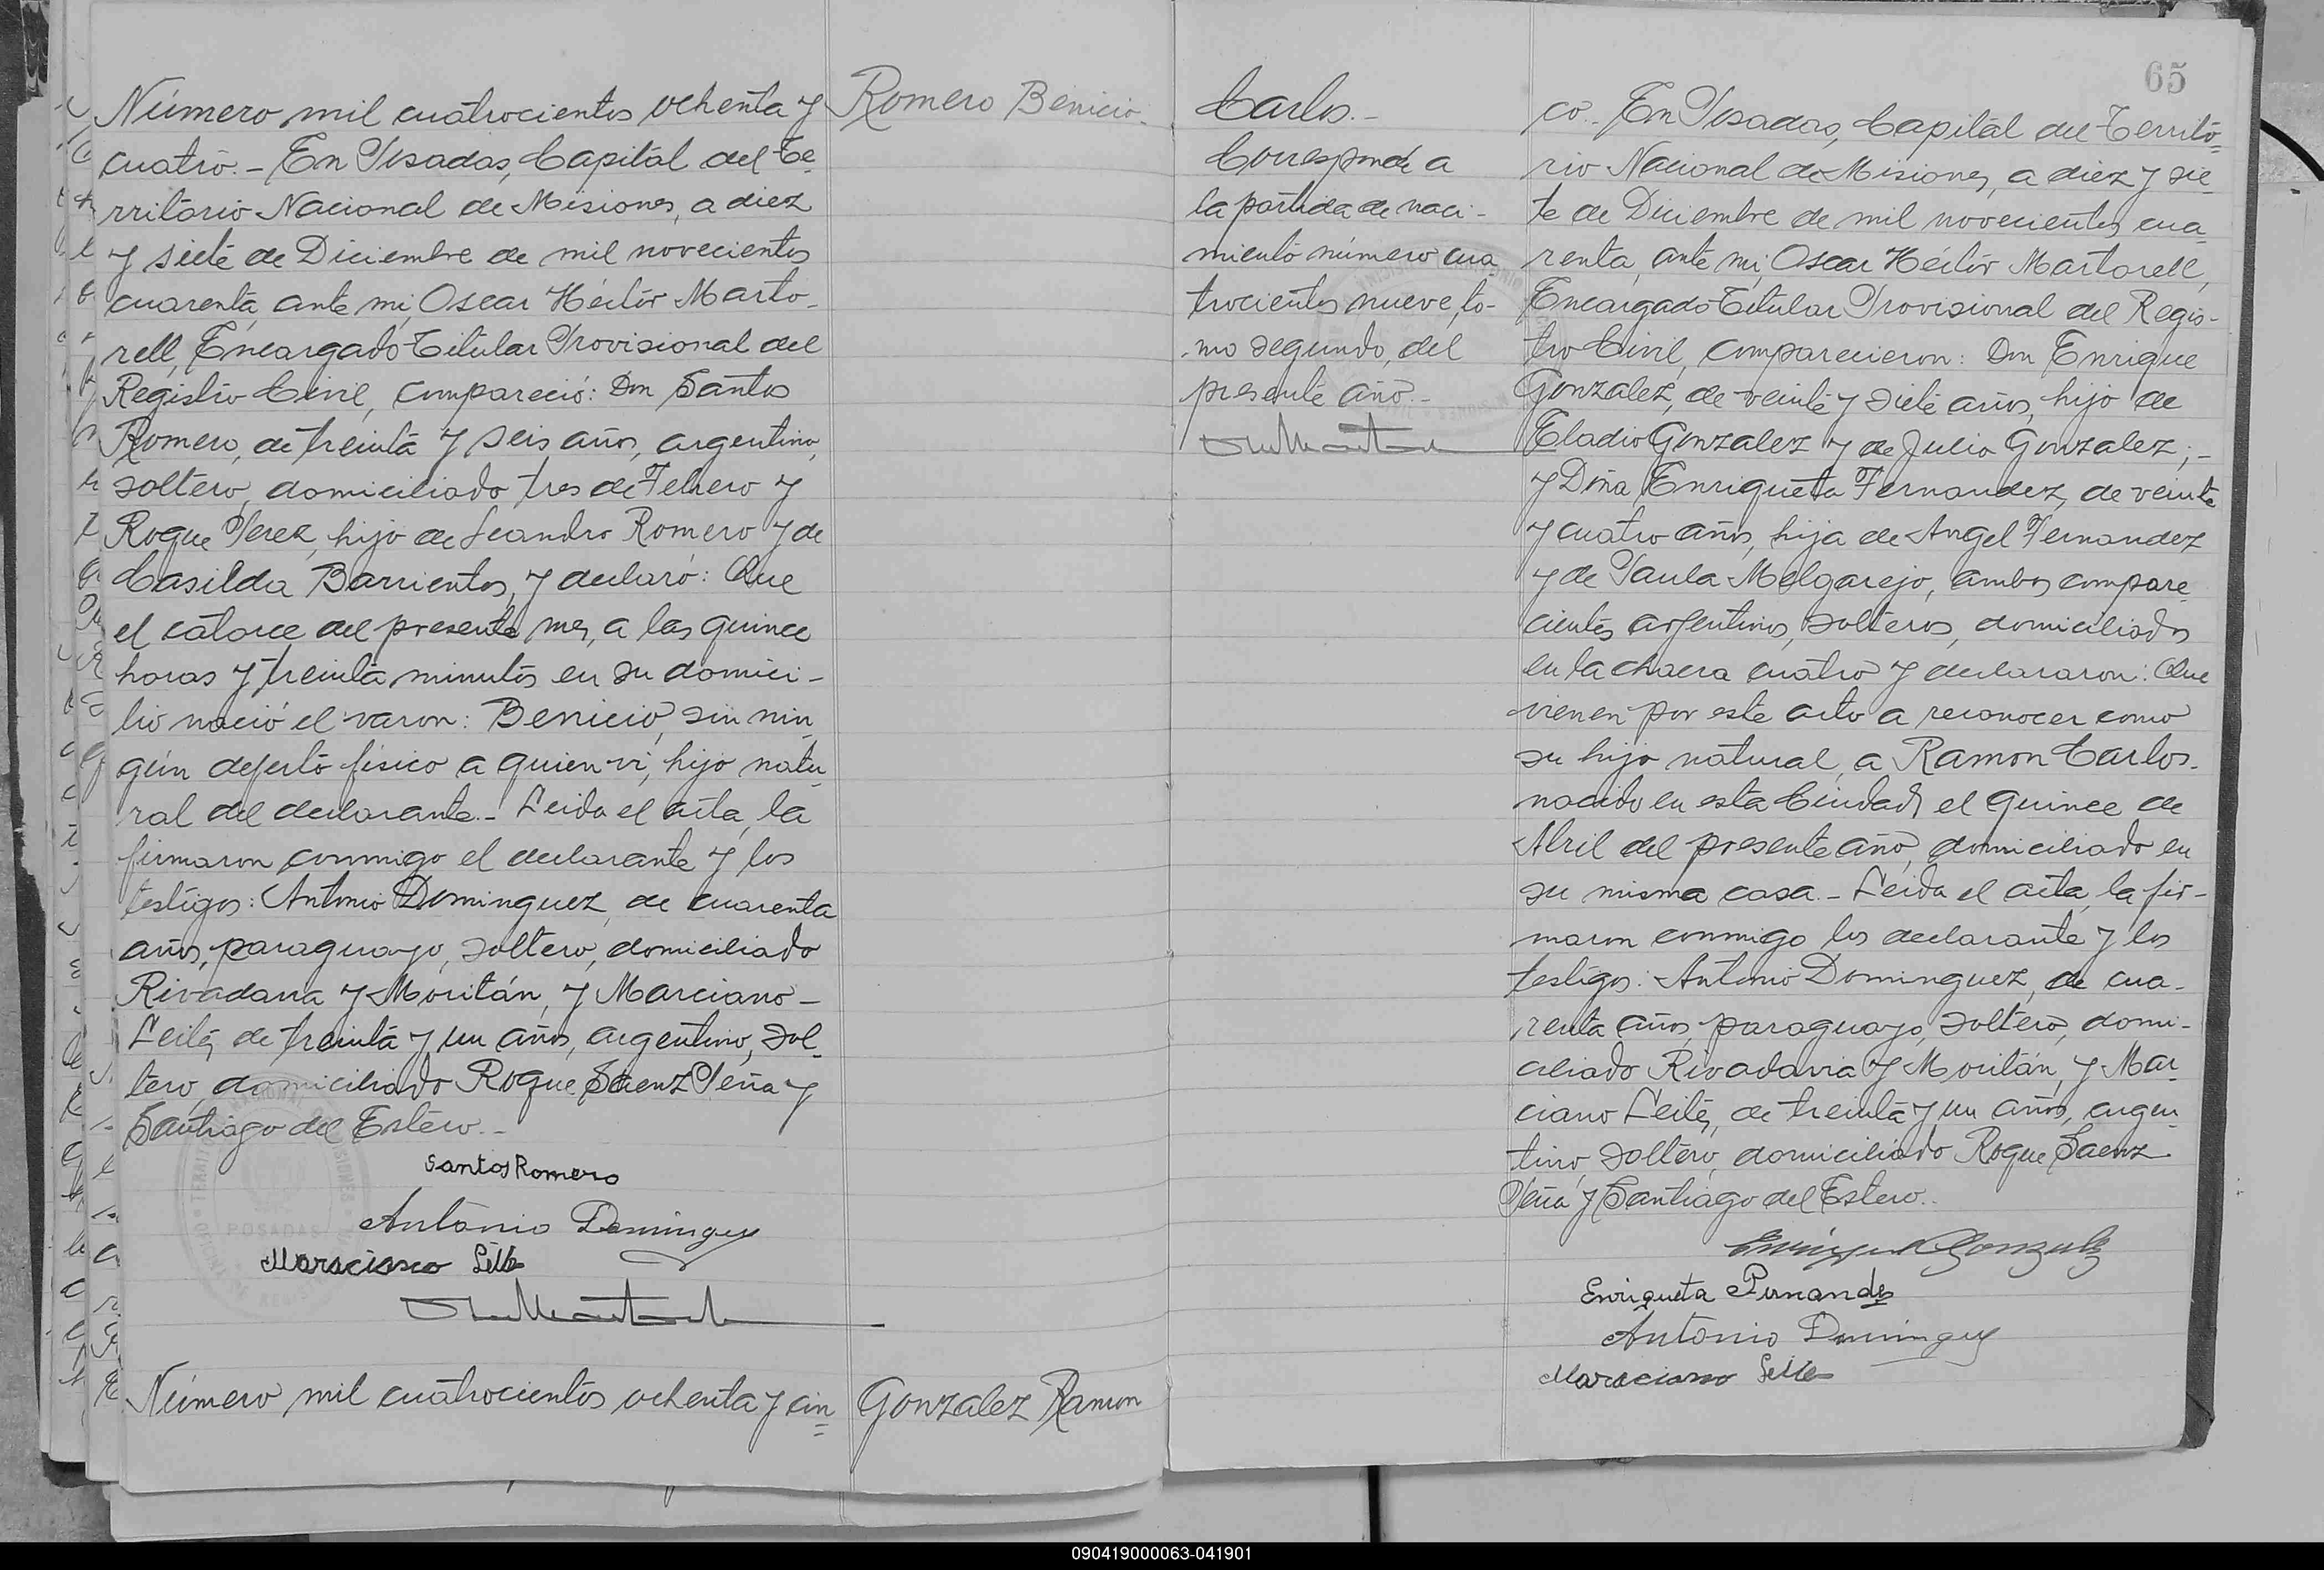 Número mil cuatrocientos ochenta y
cuatro.- En Posadas, Capital del Te-
rritorio Nacional de Misiones, a diez
y siete de Diciembre de mil novecientos
cuarenta, ante mi, Oscar Héctor Marto-
rell, Encargado Titular Provisional del
Registro Civil, compareció: Don Santos
Romero, de treinta y seis años, argentino,
soltero, domiciliado tres de Febrero y
Roque Perez, hijo de Leandro Romero y de
Casilda Barrientos, y declaró: Que
el catorce del presente mes, a las quince
horas y treinta minutos en su domici-
lio nació el varon: Benicio, sin nin-
gún defecto físico a quien vi, hijo natu-
ral del declarante.- Leida el acta, la
firmaron conmigo el declarante y los
testigos: Antonio Dominguez, de cuarenta
años, paraguayo, soltero, domiciliado
Rivadavia y Moritán, y Marciano-
Leites, de treinta y un años, argentino, sol-
tero, domiciliado Roque Saenz Peña y
Santiago del Estero.-
Santos Romero
Antonio Dominguez
POSADAS
Número mil cuatrocientos ochenta y cin=
Romero Benicio.
Gonzalez Ramon
65
Carlos.-
Corresponde a
la partida de naci-
miento número cua-
trocientos nueve, to-
mo segundo, del
presente año.-
co.- En Posadas, Capital del Territo=
rio Nacional de Misiones, a diez y sie-
te de Diciembre de mil novecientos cua-
renta, ante mi, Oscar Héctor Martorell,
Encargado Titular Provisional del Regis-
tro Civil, comparecieron: Don Enrique
Gonzalez, de veinte y siete años, hijo de
Eladio Gonzalez y de Julia Gonzalez;-
y Doña Enriqueta Fernandez, de veinte
y cuatro años, hija de Angel Fernandez
y de Paula Melgarejo, ambos compare-
cientes argentinos, solteros, domiciliados
en la chacra cuatro y declararon: Que
vienen por este acto a reconocer como
su hijo natural, a Ramon Carlos.
nacido en esta Ciudad, el quince de
Abril del presente año, domiciliado en
su misma casa.- Leida el acta, la fir-
maron conmigo los declarante y los
testigos: Antonio Dominguez, de cua-
renta años, paraguayo, soltero, domi-
ciliado Rivadavia y Moritán, y Mar-
ciano Leites, de treinta y un años, argen-
tino, soltero, domiciliado Roque Saenz
Peña y Santiago del Estero.-
Enrique Gonzalez
Enriqueta Fernandes
Antonio Dominguez
090419000063-041901